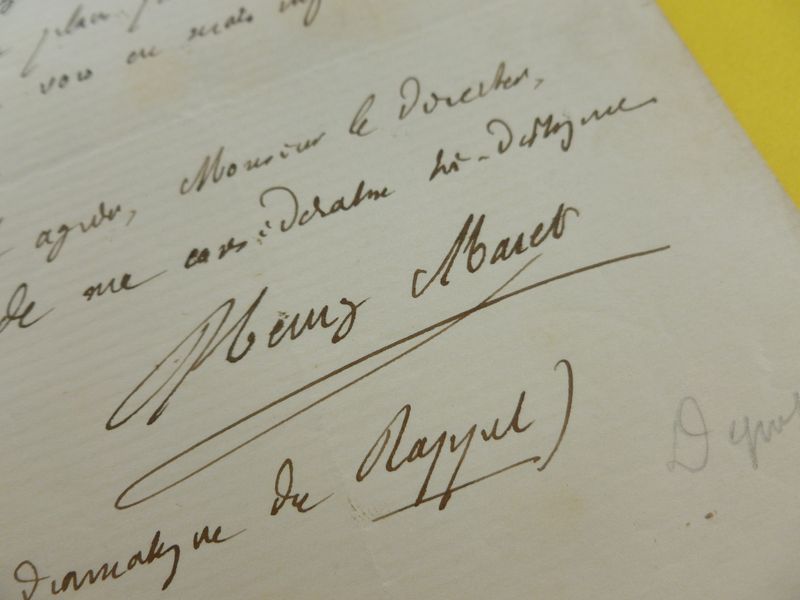 plus
vous ou mais
agréer, Monsieur le Directeur,
de ma considération très-distinguée
Henry Maret
dramatique du Rappel)